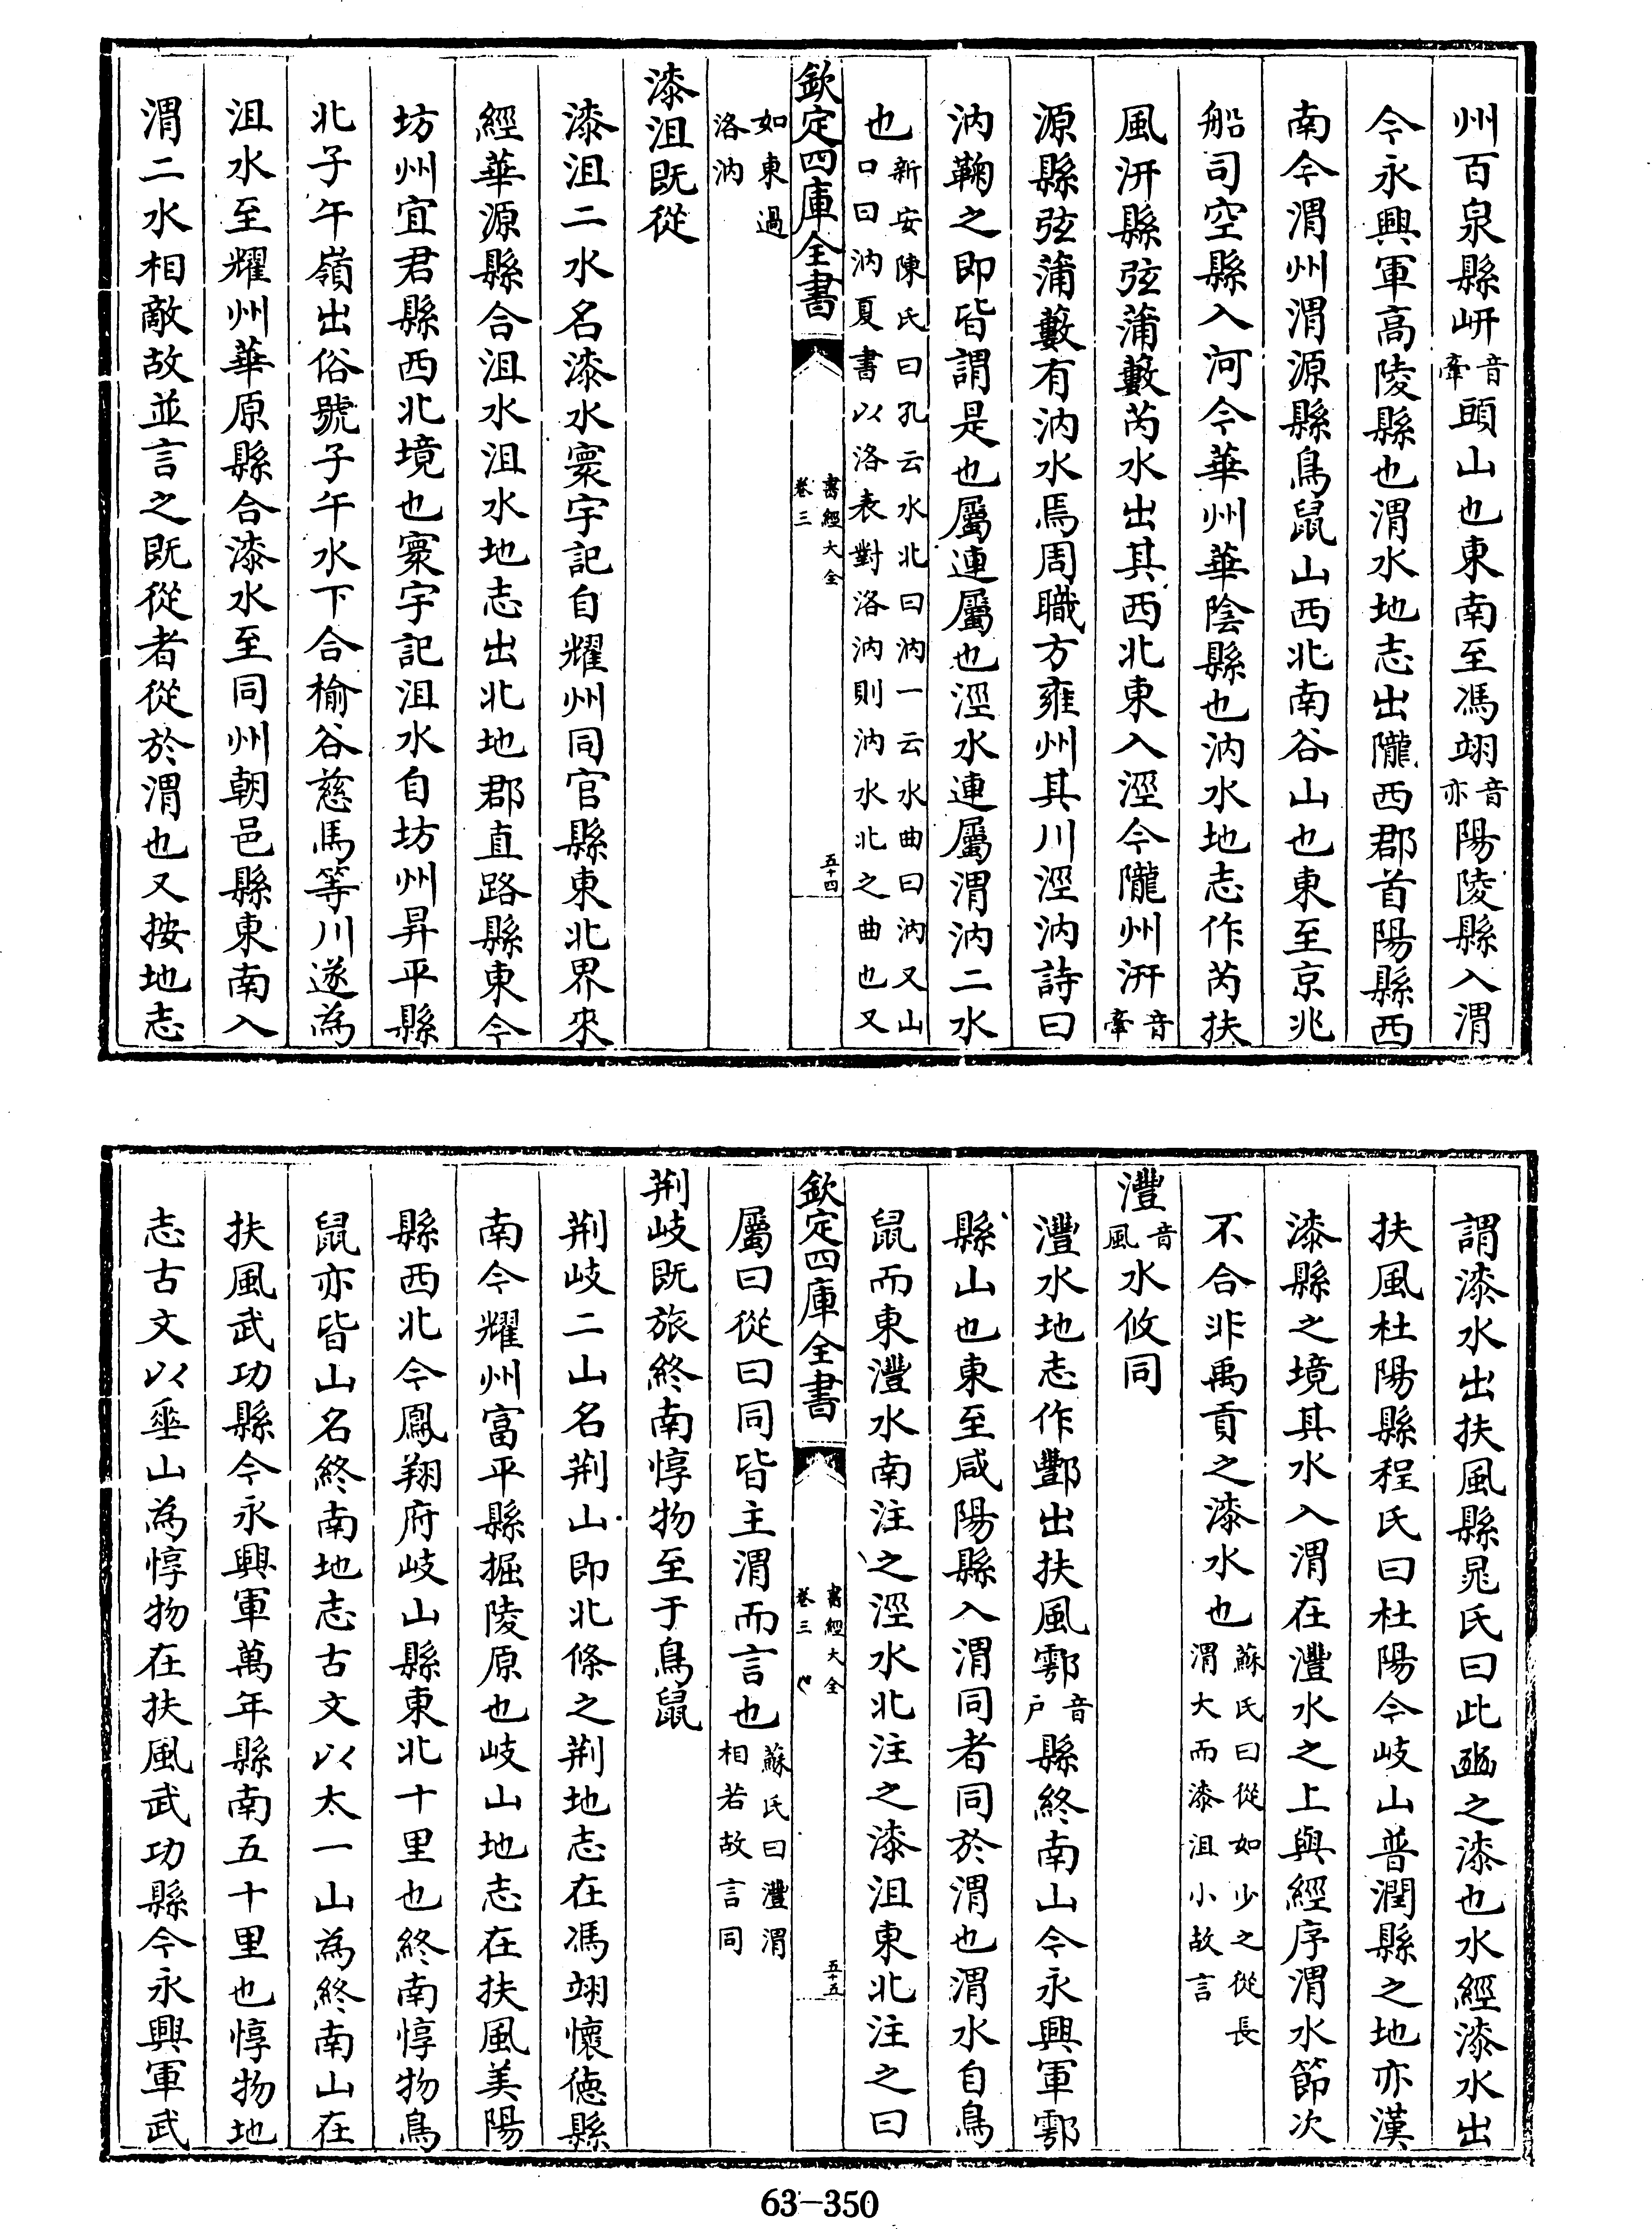 州百泉縣岍音牽頭山也東南至馮翊音亦陽陵縣入渭
今永興軍高陵縣也渭水地志出隴西郡首陽縣西
南今渭州渭源縣鳥鼠山西北南谷山也東至京兆
船司空縣入河今華州華陰縣也汭水地志作芮扶
風汧縣弦蒲藪芮水出其西北東入涇今隴州汧音牽
源縣弦蒲藪有汭水焉周職方雍州其川涇汭詩曰
汭鞫之即皆謂是也屬連屬也涇水連屬渭汭二水
也新安陳氏曰孔云水北曰汭一云水曲曰汭又山
口曰汭夏書以洛表對洛汭則汭水北之曲也又
欽定四庫全書
書經大全
卷三
五十四
如東過
洛汭
漆沮既從
漆沮二水名漆水寰宇記自耀州同官縣東北界來
經華源縣合沮水沮水地志出北地郡直路縣東今
坊州宜君縣西北境也寰宇記沮水自坊州昇平縣
北子午嶺出俗號子午水下合榆谷慈馬等川遂為
沮水至耀州華原縣合漆水至同州朝邑縣東南入
渭二水相敵故並言之既從者從於渭也又按地志
謂漆水出扶風縣晁氏曰此豳之漆也水經漆水出
扶風杜陽縣程氏曰杜陽今岐山普潤縣之地亦漢
漆縣之境其水入渭在灃水之上與經序渭水節次
不合非禹貢之漆水也蘇氏曰從如少之從長
渭大而漆沮小故言
灃音風水攸同
灃水地志作酆出扶風鄠音戶縣終南山今永興軍鄠
縣山也東至咸陽縣入渭同者同於渭也渭水自鳥
鼠而東灃水南注之涇水北注之漆沮東北注之曰
欽定四庫全書
書經大全
卷三
五十五
屬曰從曰同皆主渭而言也蘇氏曰灃渭
相若故言同
荆岐既旅終南惇物至于鳥鼠
荆岐二山名荆山即北條之荆地志在馮翊懷德縣
南今耀州富平縣掘陵原也岐山地志在扶風美陽
縣西北今鳳翔府岐山縣東北十里也終南惇物鳥
鼠亦皆山名終南地志古文以太一山為終南山在
扶風武功縣今永興軍萬年縣南五十里也惇物地
志古文以垂山為惇物在扶風武功縣今永興軍武
63-350